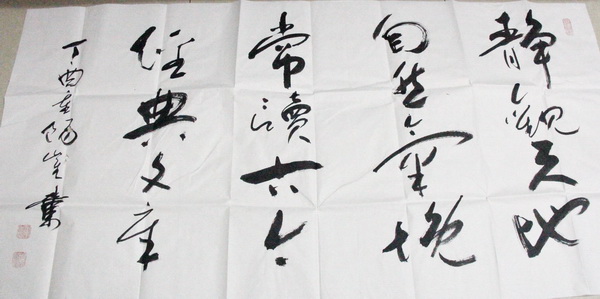 静觀天地
自然氣概
常讀古今
經典文章
丁酉重陽